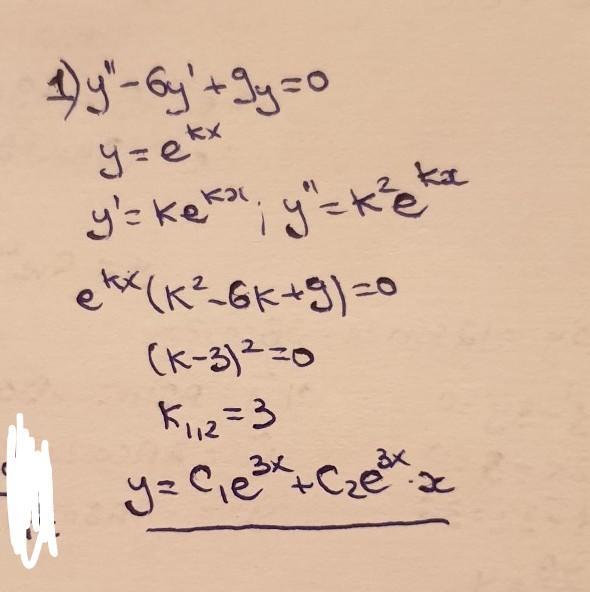 1) y'' - 6y' + 9y = 0
y = e^{kx}
y' = ke^{kx}; y'' = k²e^{kx}
e^{kx}(k² - 6k + 9) = 0
(k - 3)² = 0
k_{1,2} = 3
y = C₁e^{3x} + C₂e^{3x} · x